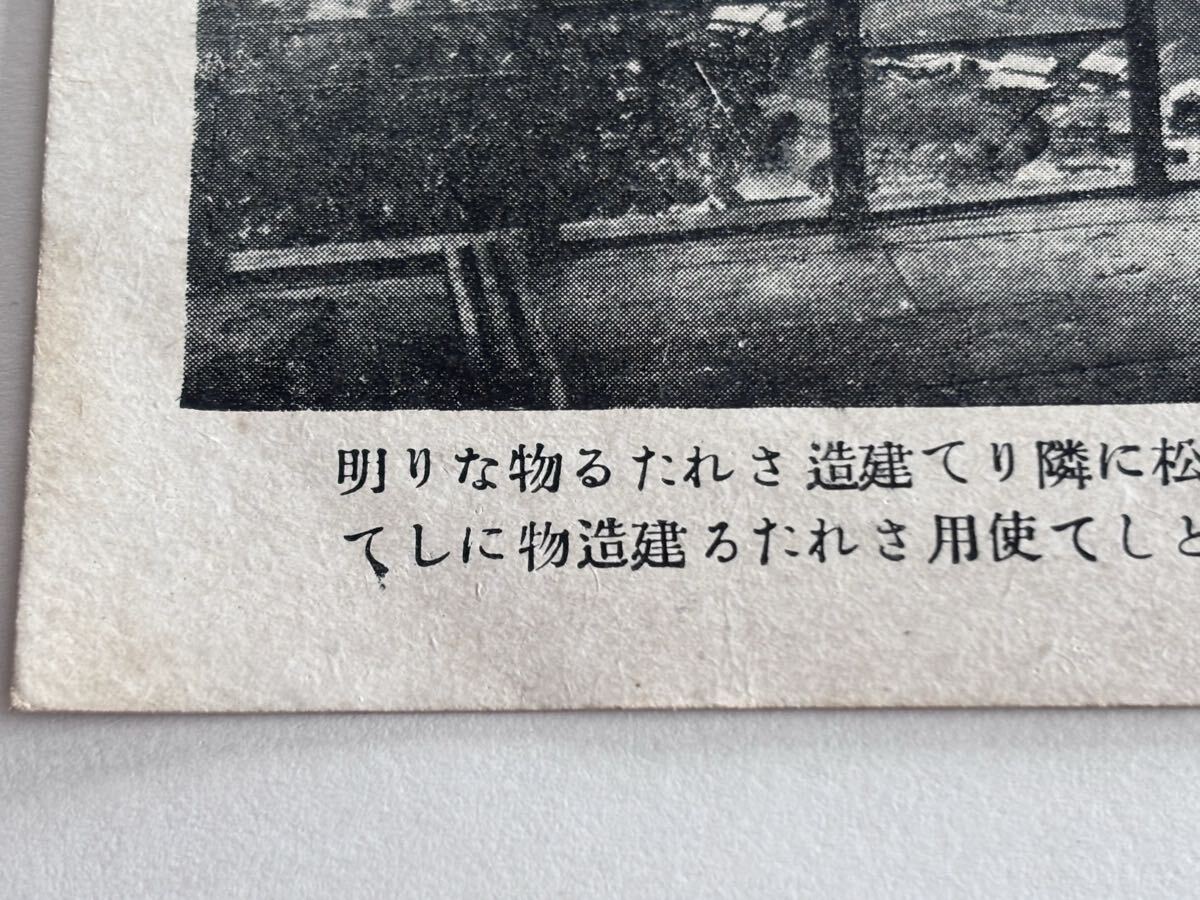 松に隣りて建造されたる物なり明
として使用されたる建造物にして